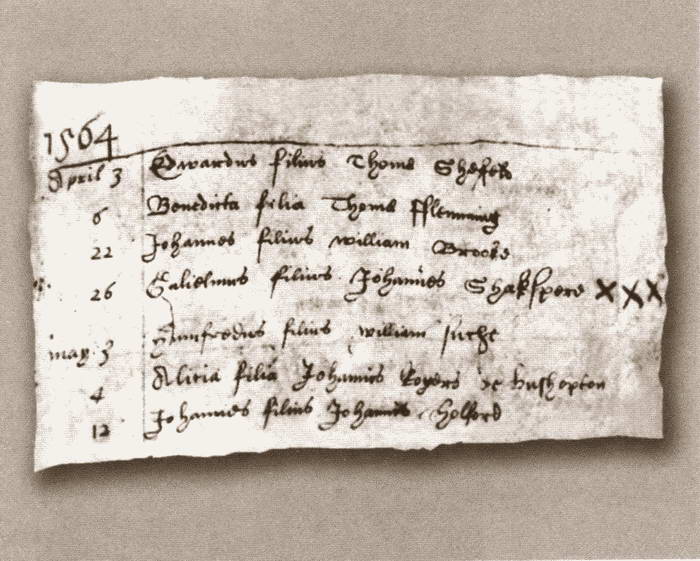 1564
April 3 Edwardus filius Thome Shefeld
6 Benedicta filia Thome Fflemming
22 Johannes filius William Brooke
26 Gulielmus filius Johannes Shakspere XXX
may 3 filius William
4 Alicia filia Johannis Rogers de
12 Johannes filius Johannis Holford